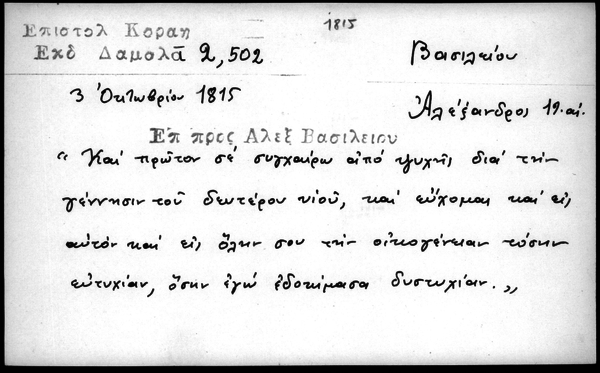 Επιστολ Κοραη
1815
Εκδ Δαμαλᾶ 2,502
Βασιλείου
3 Ὀκτωβρίου 1815
Ἀλέξανδρος 19. αἰ.
Επ προς Αλεξ Βασιλειου
" Καί πρῶτον σέ συγχαίρω ἀπό ψυχῆς διά τήν
γέννησιν τοῦ δευτέρου υἱοῦ, καί εὔχομαι καί εἰς
αὐτόν καί εἰς ὅλην σου τήν οἰκογένειαν τόσην
εὐτυχίαν, ὅσην ἐγώ ἐδοκίμασα δυστυχίαν. "